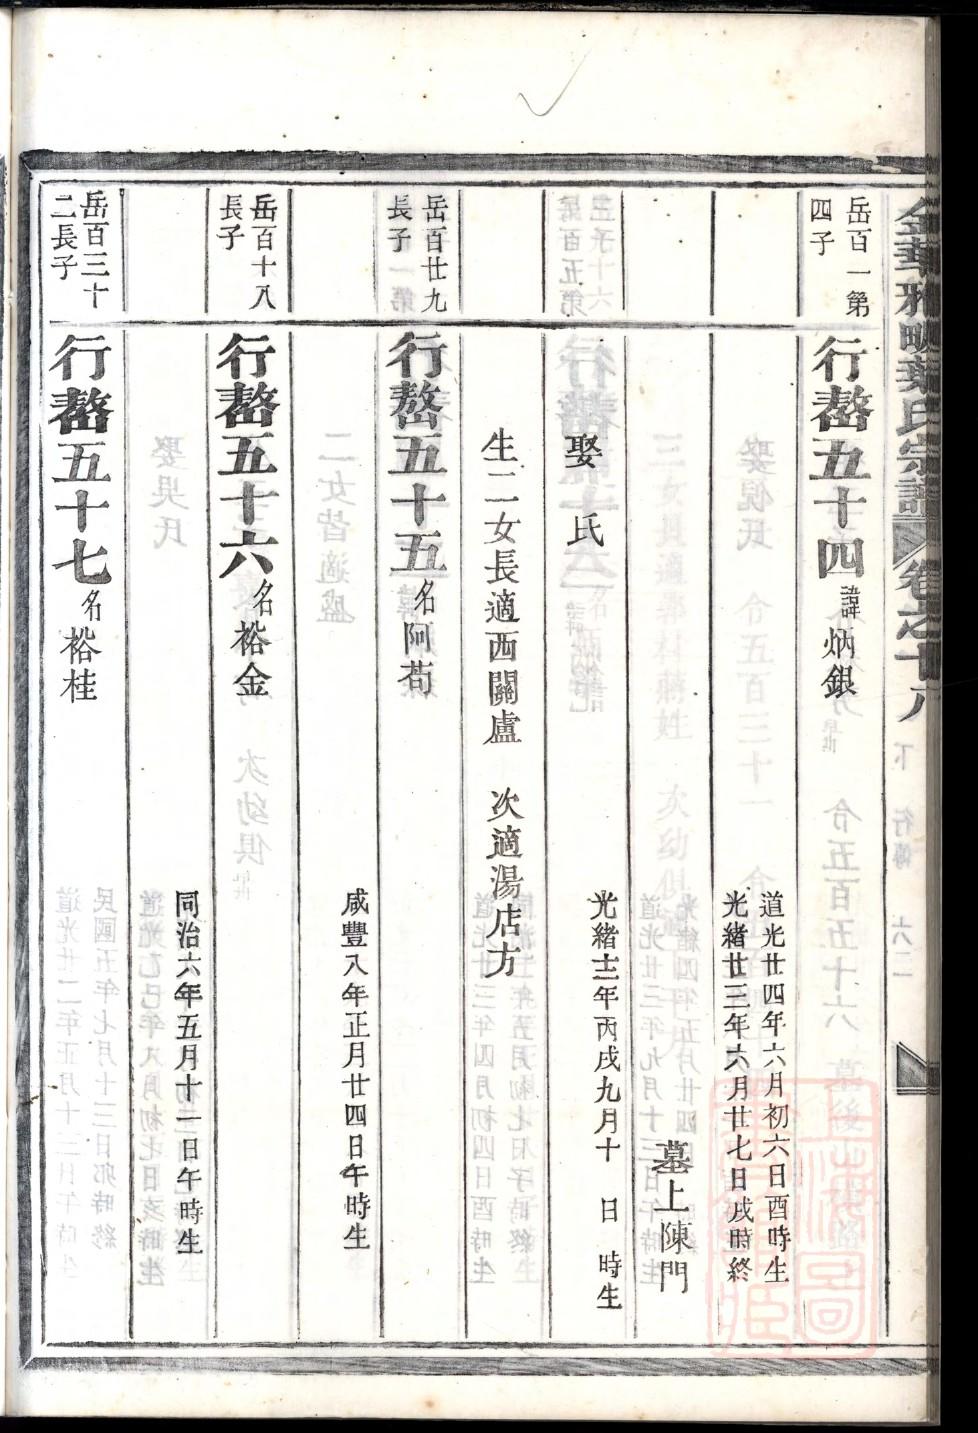 金華雅畈葉氏宗譜 卷之十八 下 行傳 六二
岳百一第
四子
行嶅五十四 諱炳銀
道光廿四年六月初六日酉時生
光緒廿三年六月廿七日戌時終
墓上陳門
娶 氏
光緒十二年丙戌九月十 日 時生
生二女長適西關盧 次適湯店方
岳百廿九
長子
行嶅五十五 名阿苟
咸豐八年正月廿四日午時生
岳百十八
長子
行嶅五十六 名裕金
同治六年五月十一日午時生
岳百三十
二長子
行嶅五十七 名裕桂